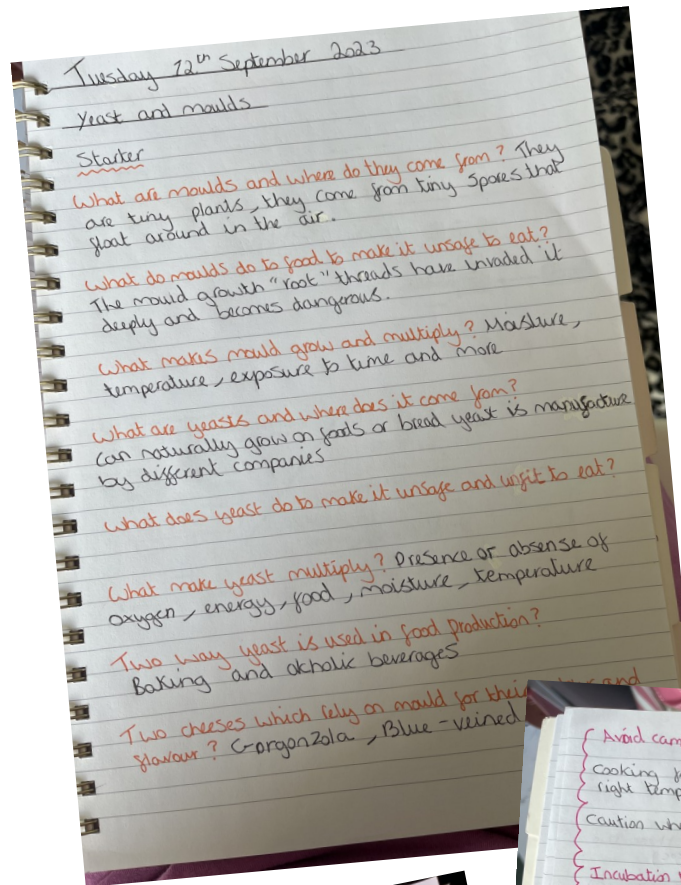 Tuesday 12th September 2023
Yeast and moulds
Starter
What are moulds and where do they come from? They
are tiny plants, they come from tiny spores that
float around in the air.
What do moulds do to food to make it unsafe to eat?
The mould growth "root" threads have invaded it
deeply and becomes dangerous.
What makes mould grow and multiply? Moisture,
temperature, exposure to time and more
What are yeasts and where does it come from?
Can naturally grow on foods or bread yeast is manufacture
by different companies
What does yeast do to make it unsafe and unfit to eat?
What make yeast multiply? Presence or absense of
oxygen, energy, food, moisture, temperature
Two way yeast is used in food production?
Baking and akholic beverages
Two cheeses which rely on mould for their and
flavour? Gorgonzola, Blue-veined
Avoid
Cooking
right
Caution
Incubation